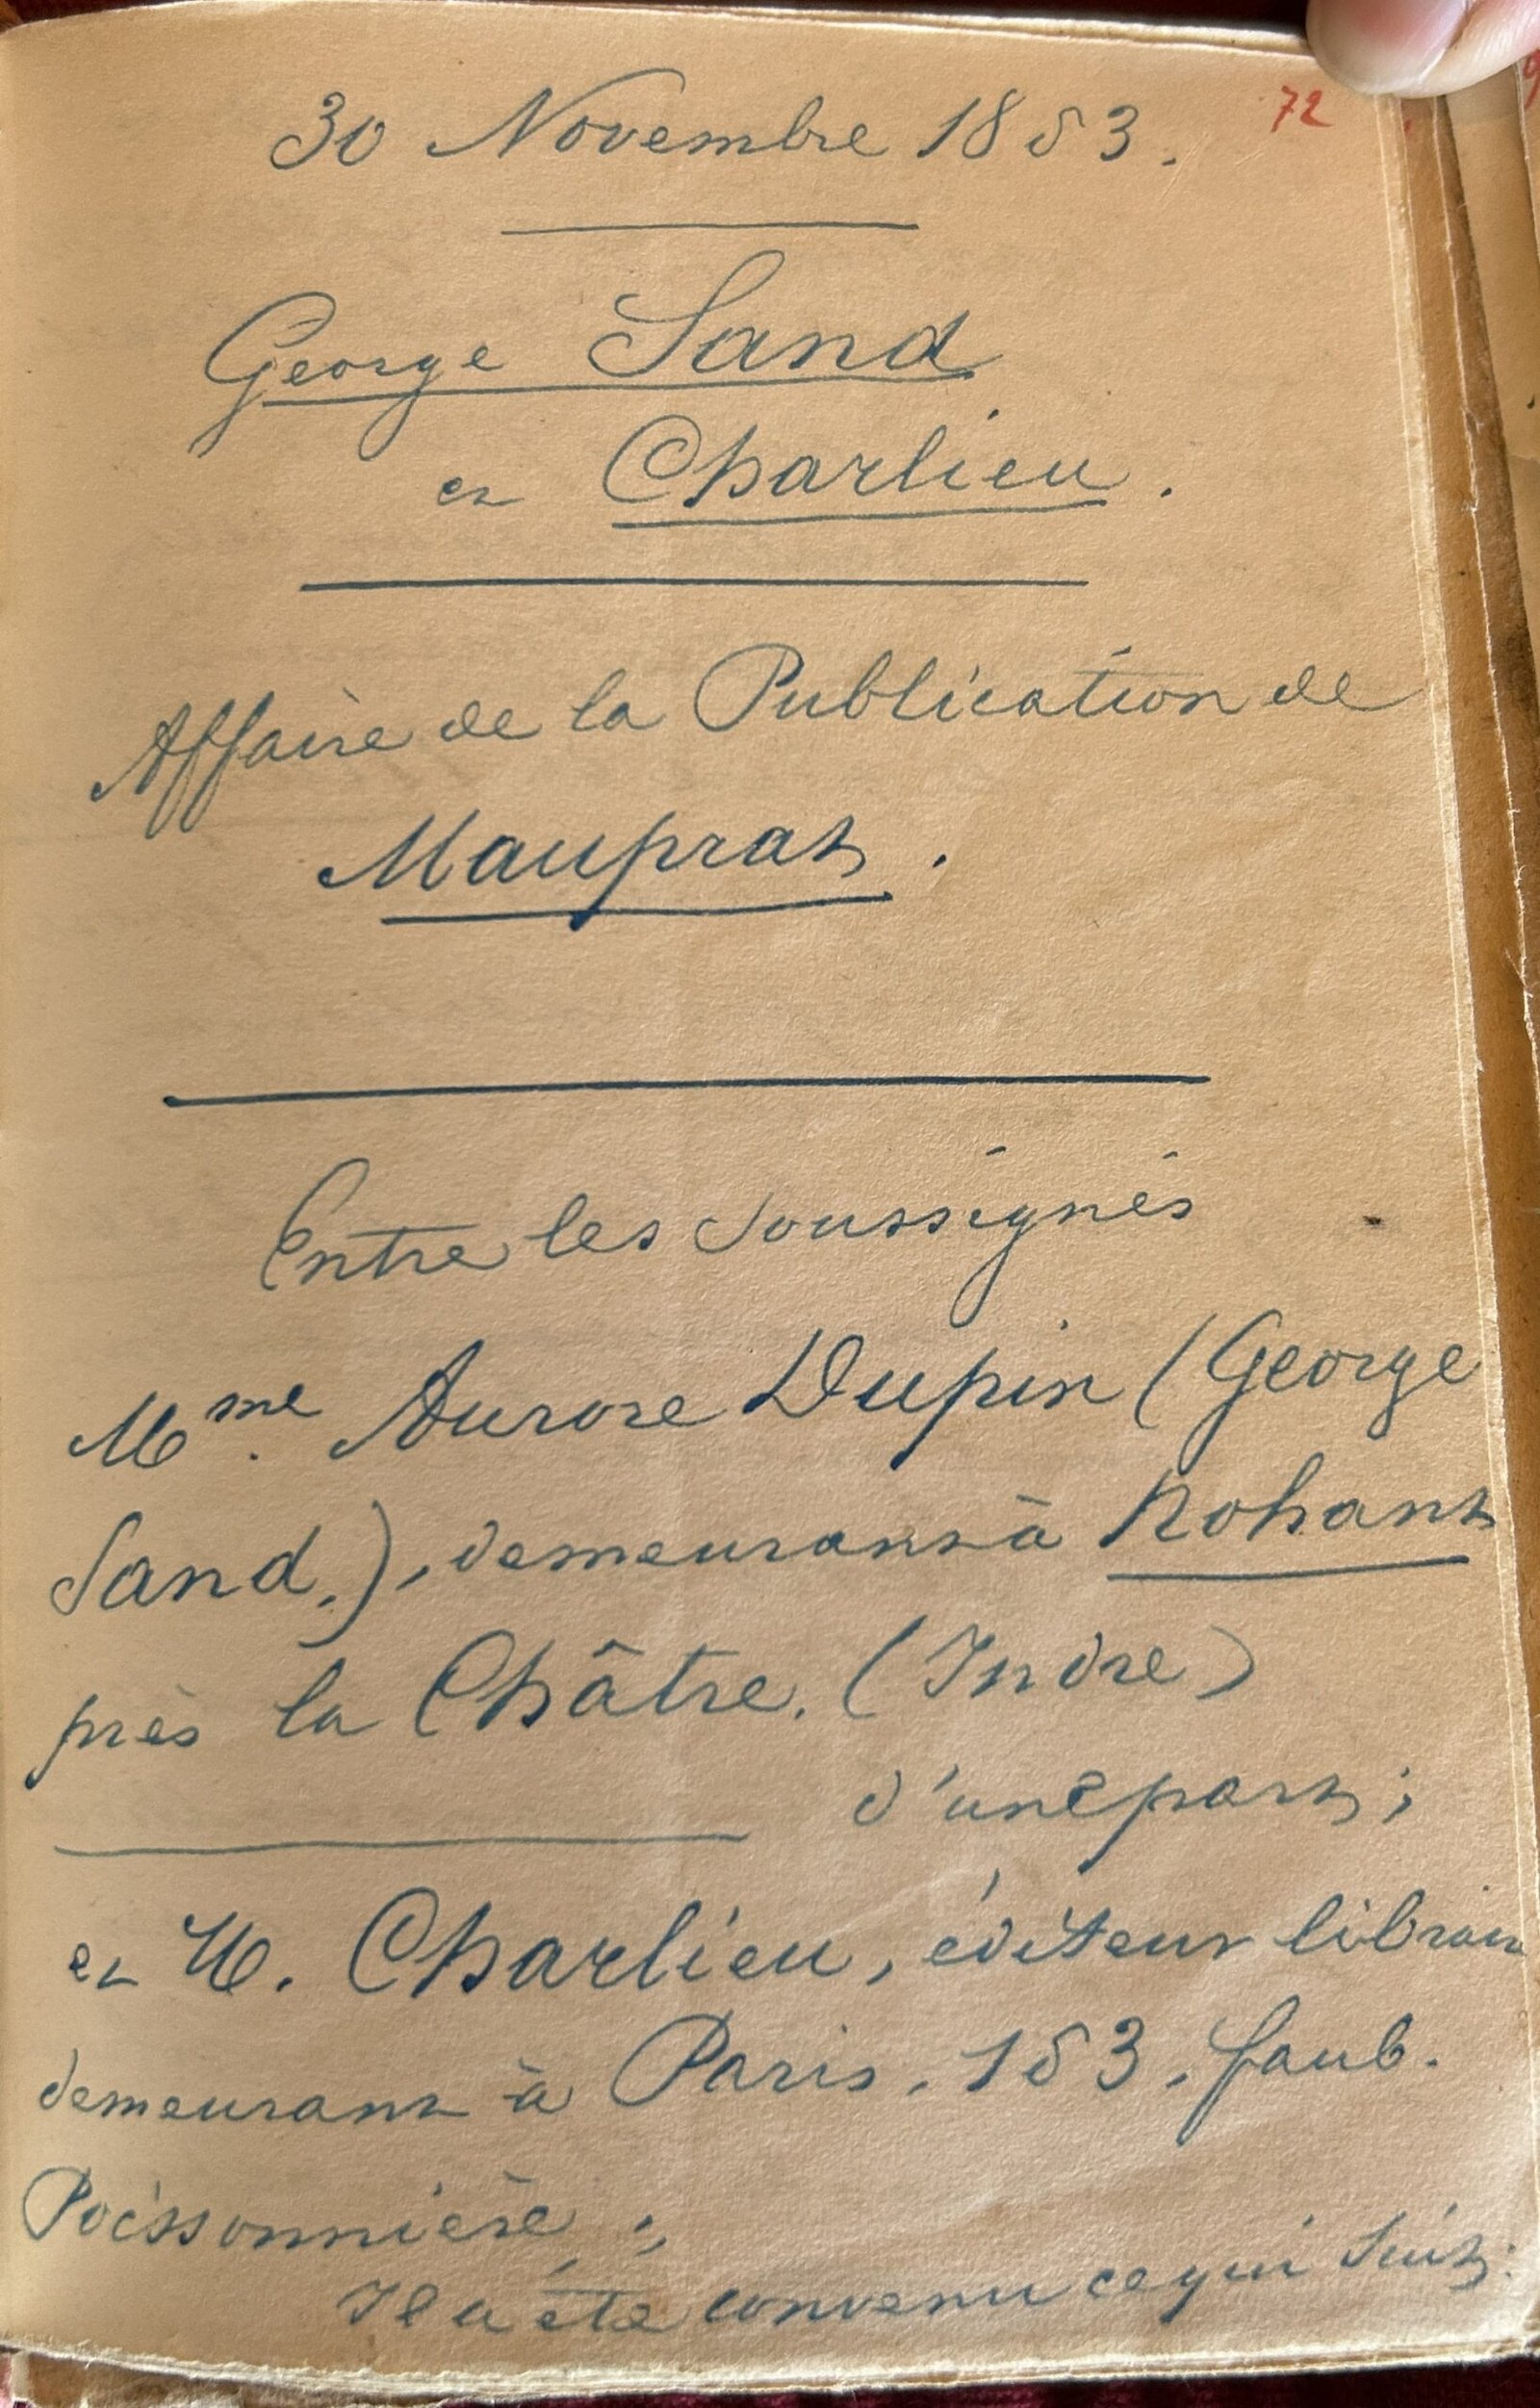 72
30 Novembre 1853.
George Sand
et Charlieu.
Affaire de la Publication de
Mauprat.
Entre les soussignés
Mme. Aurore Dupin (George
Sand.), demeurant à Nohant
près la Châtre. (Indre)
d'une part;
et M. Charlieu, éditeur libraire
demeurant à Paris. 153. faub.
Poissonnière;
Il a été convenu ce qui suit: